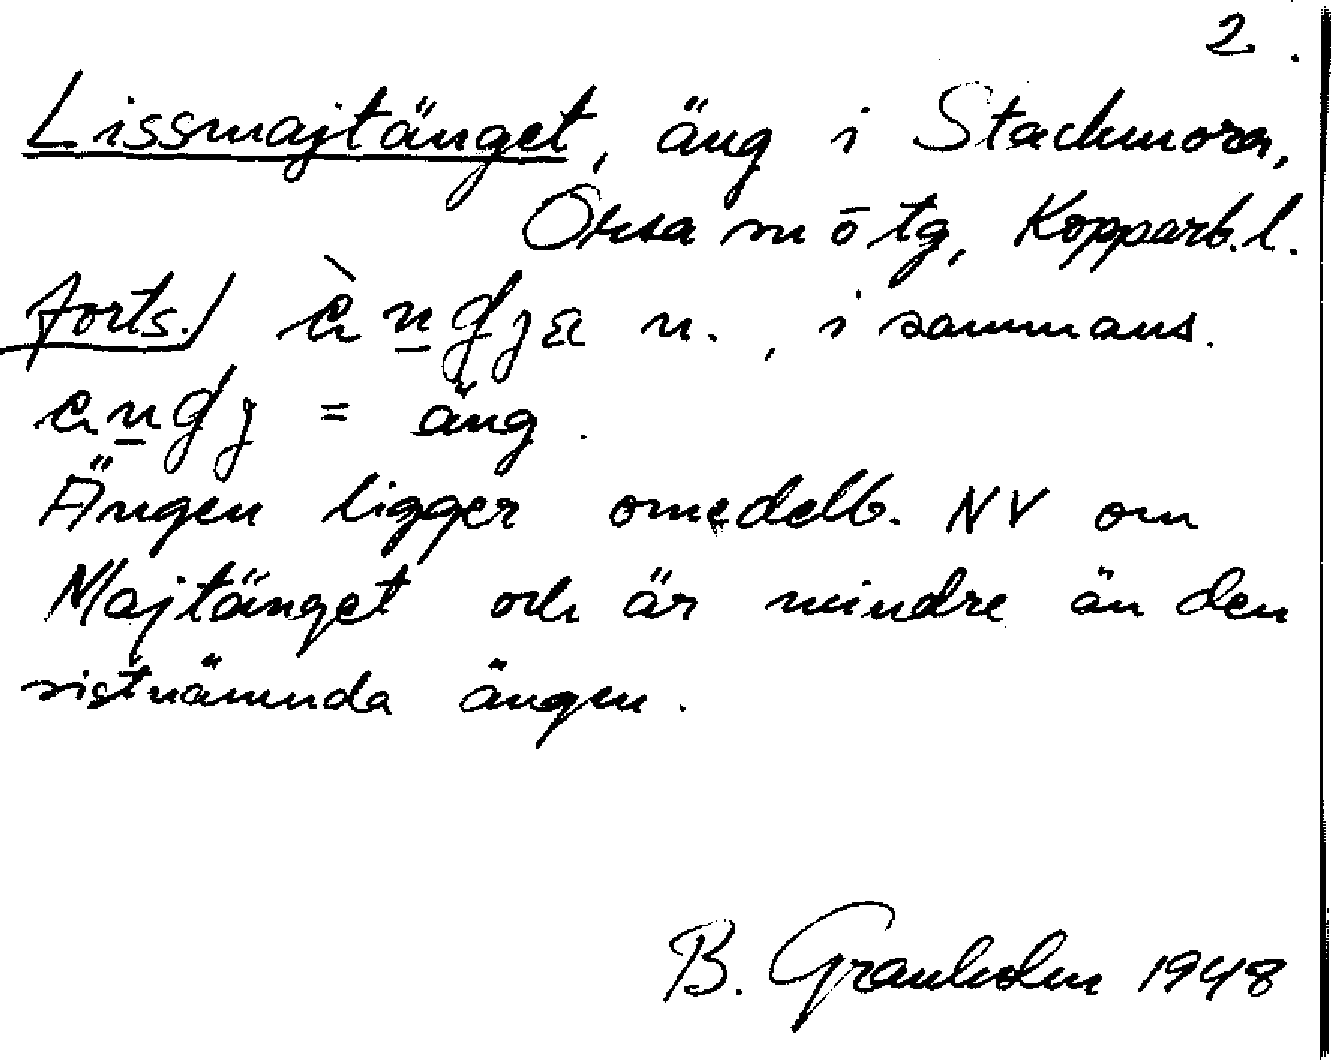 2.
Lissmajtänget, äng i Stackmora,
Orsa sn o tg, Kopparb.l.
forts./ n. , i sammans.
= äng.
Ängen ligger omedelb. NV om
Majtänget och är mindre än den
sistnämnda ängen.
B. Granholm 1948